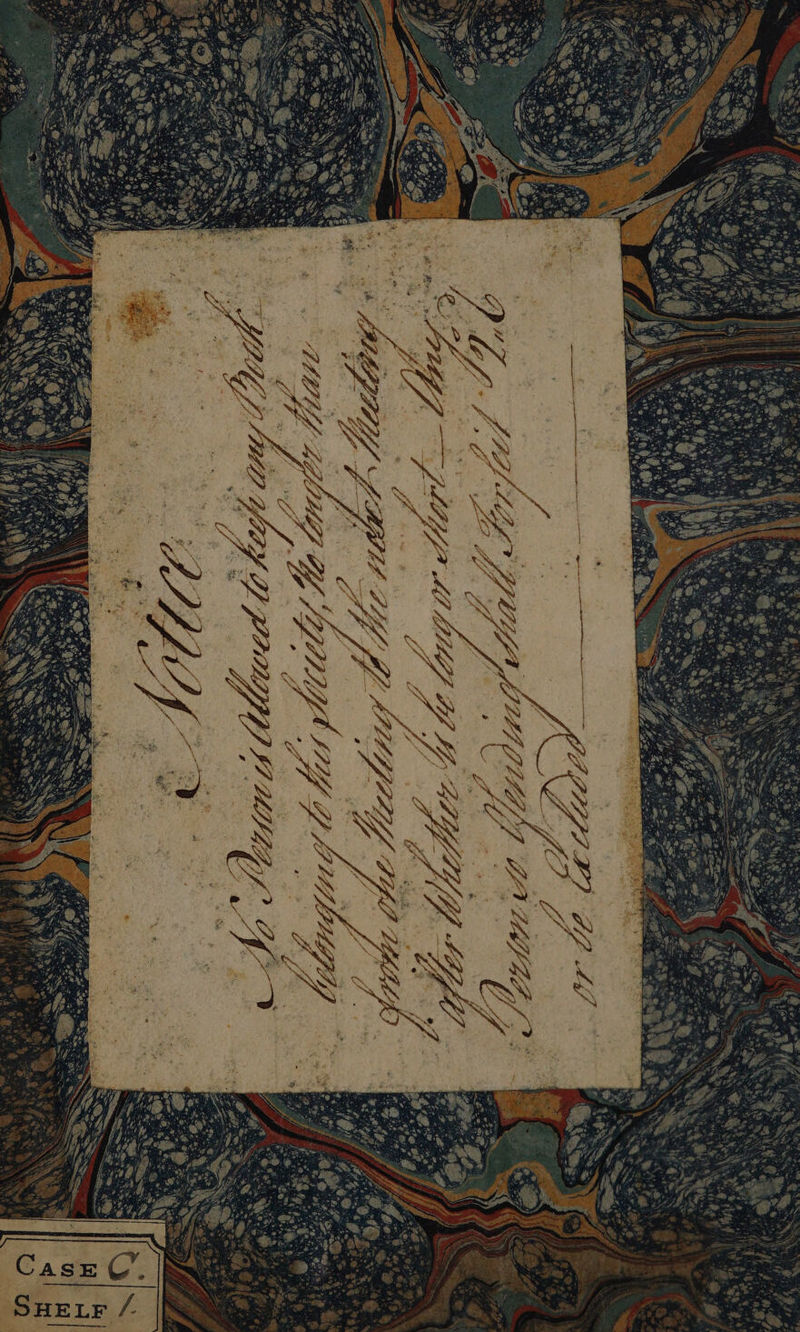 Notice
No Person is Allowed to keep any Book
belonging to this Society, No longer than
from one Meeting to the next Meeting
after Whether it be long or short — Any
Person so Offending shall Forfeit 2..6
or be Excluded
CASE C.
SHELF 1.